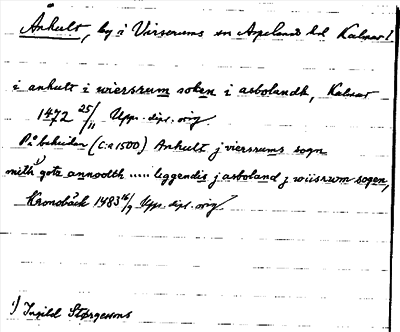 Ånhult, by i Virserums sn Aspeland hd Kalmar l
i anhult i wiersrum soken i asbolandh, Kalmar
1472 25/11 Upps. dipl. orig
På baksidan (c:a 1500) Anhult j viersrums sogn
mith 1) gotz annodth ..... leggendis j asboland j wiisrwm sogen,
Kronobäck 1483 16/9 Upp. dipl. orig
1) Ingild Størgesøns